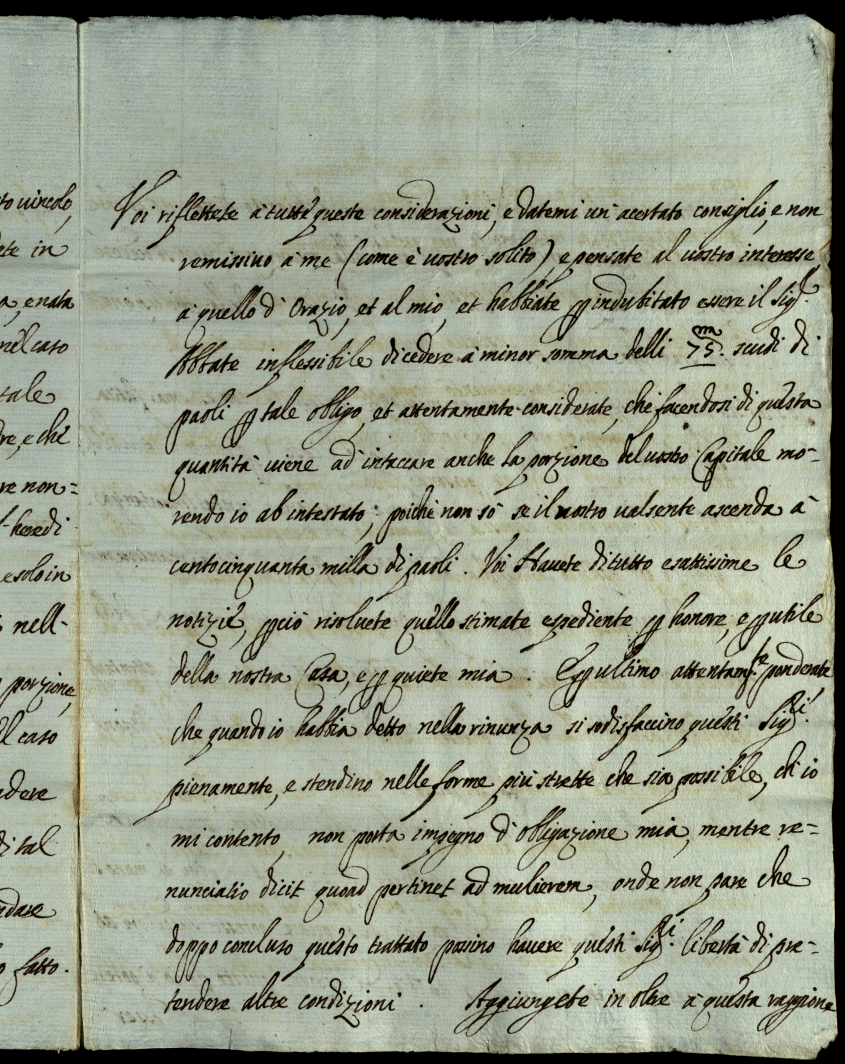 to vincolo,
ete in
a, e nata
nel caso
tale
re, e che
re non=
heredi
e solo in
nell-
porzione,
l caso
ndere
di tal
ndare
o fatto.
Voi riflettete à tutte queste considerazioni, e datemi un' acertato consiglio, e non
remissivo à me (come è vostro solito) e pensate al vostro interesse
à quello d' Orazio, et al mio, et habbiate p indubitato essere il Sigr.
Abbate inflessibile di cedere à minor somma delli 75.m scudi di
paoli p tale obligo, et attentamente considerate, che facendosi di questa
quantità viene ad intaccare anche la porzione del vostro Capitale mo=
rendo io ab intestato; poiche non sò se il nostro valsente ascenda à
centocinquanta milla di paoli. Voi Havete di tutto esattissime le
notizie, pciò risolvete quello stimate espediente p honore, e p utile
della nostra Casa, e p quiete mia. E p ultimo attentamte. ponderate
che quando io habbia detto nella rinunza si sodisfaccino questi Sigri.
pienamente, e stendino nelle forme più strette che sia possibile, ch' io
mi contento, non porta impegno d' obligazione mia, mentre re=
nunciatio dicit quoad pertinet ad mulierem, onde non pare che
doppo concluso questo trattato possino havere questi Sigri. libertà di pre=
tendere altre condizioni. Aggiungete in oltre à questa raggione